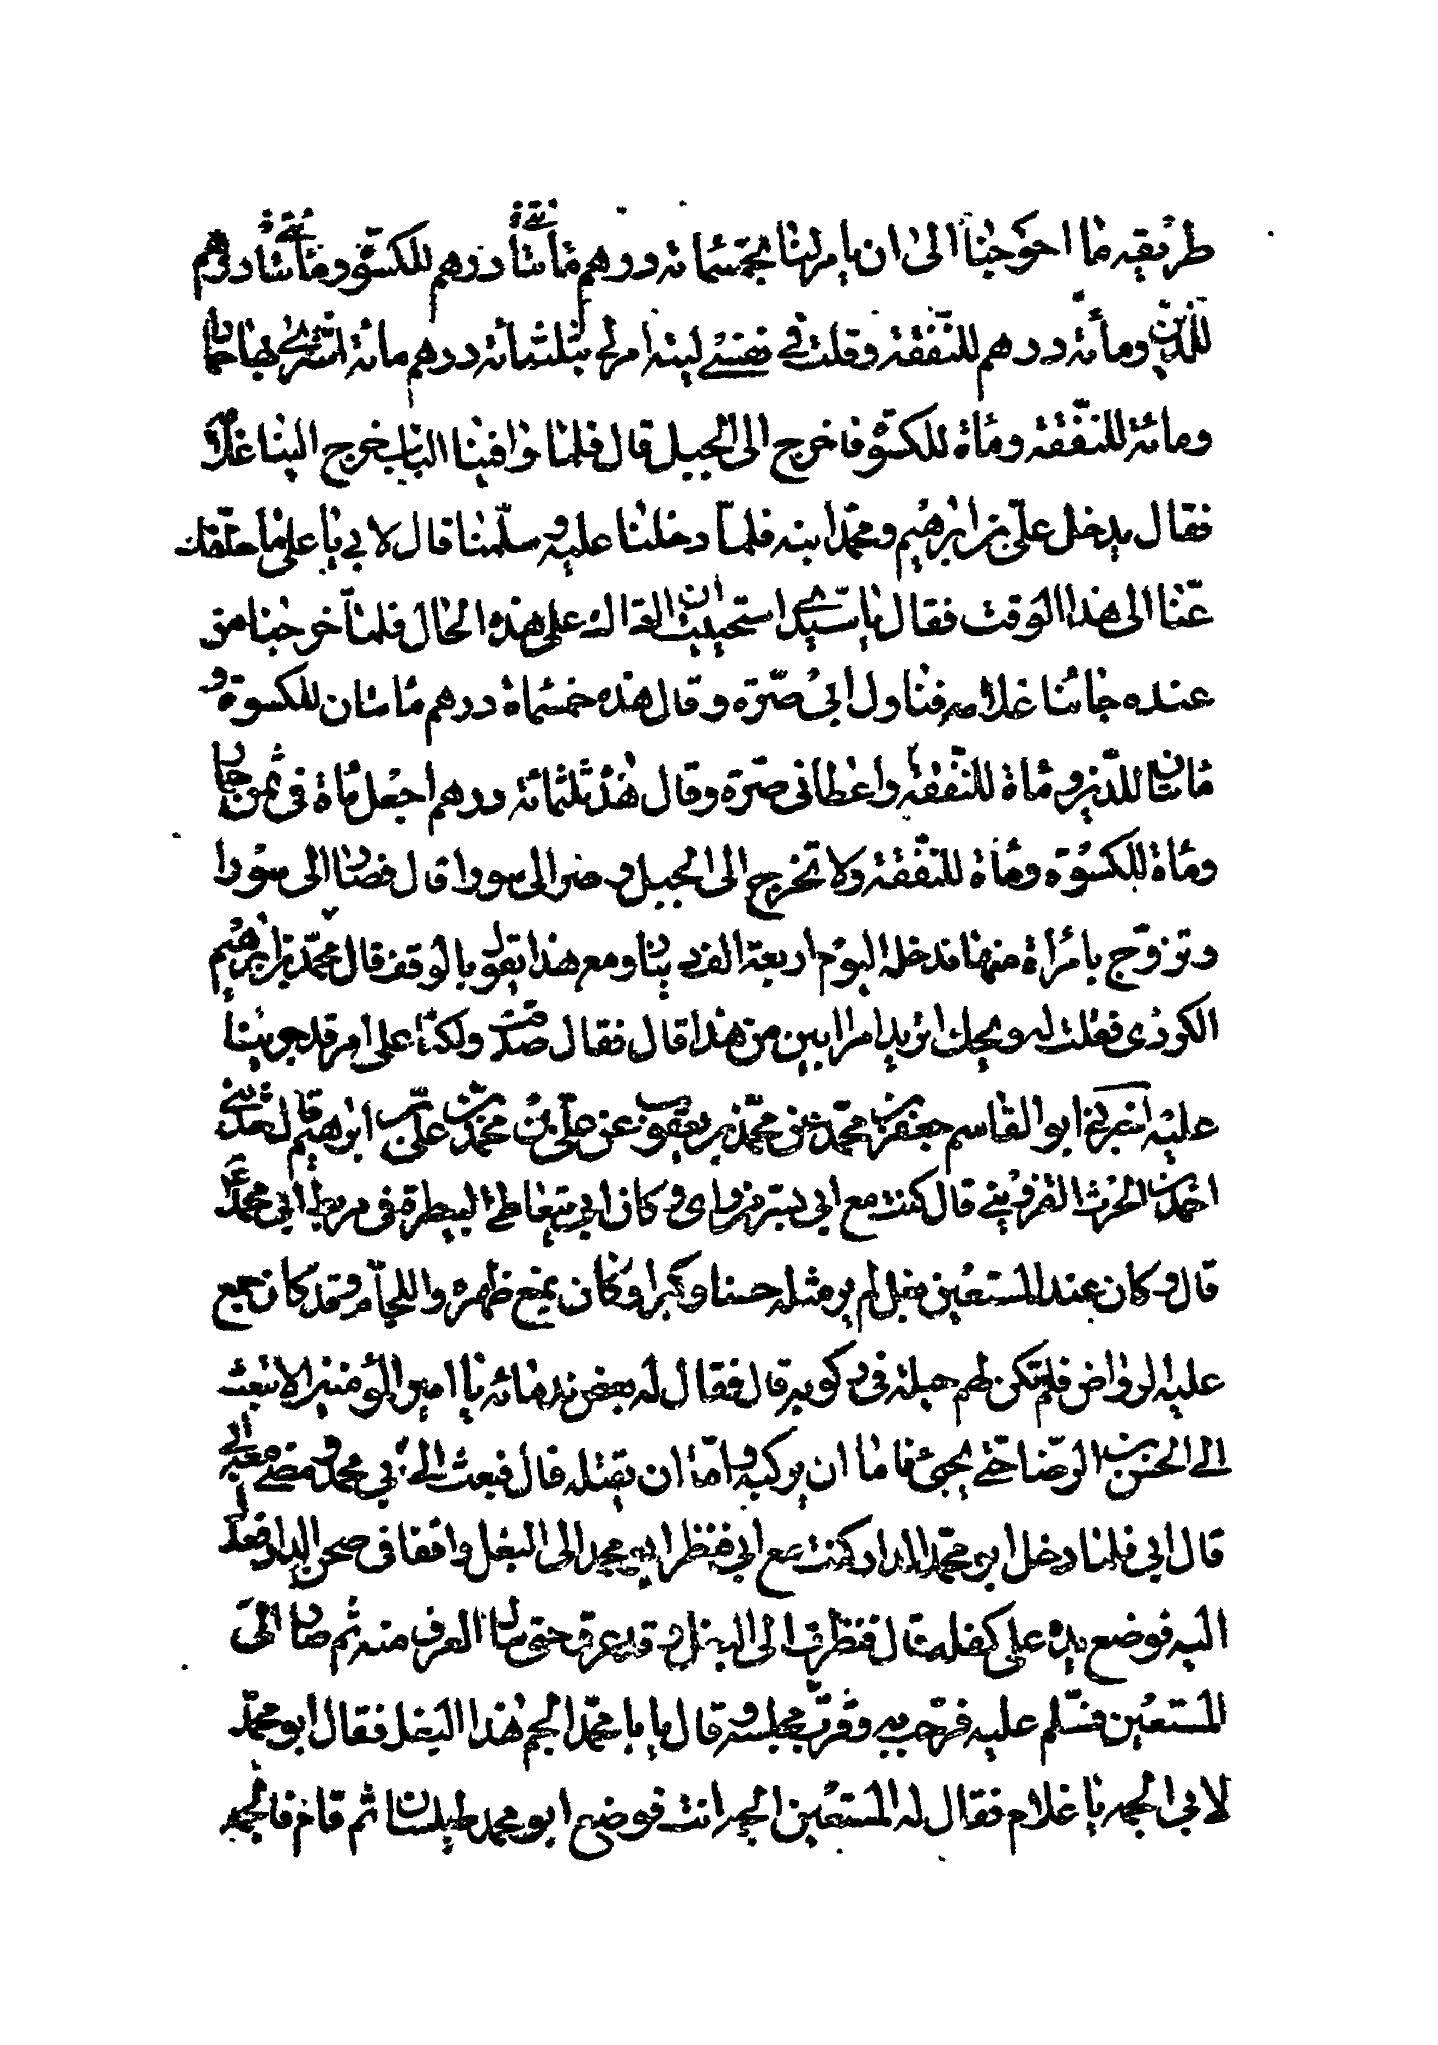 طريقه ما احوجنا الى ان يامر لنا بخمسمائه درهم مائتا درهم للكسوة ومائتا درهم
للدين ومائة درهم للنفقة وقلت في نفسي ليته امر لي بثلثمائة درهم مائة اشتري بها حمارا
ومائة للنفقة ومائة للكسوة فاخرج الى الجبل قال فلما وافينا الباب خرج الينا غلامه
فقال يدخل علي بن ابراهيم ومحمد ابنه فلما دخلنا عليه وسلمنا قال لابي يا علي ما خلفك
عنا الى هذا الوقت فقال يا سيدي استحييت ان القاك على هذه الحال فلما خرجنا من
عنده جائنا غلامه فناول ابي صرة وقال هذه خمسمائة درهم مائتان للكسوة و
مائتان للدين ومائة للنفقة واعطاني صرة وقال هذه ثلثمائة درهم اجعل مائة في ثمن حمار
ومائة للكسوة ومائة للنفقة ولا تخرج الى الجبل وصر الى سورا قال فصار الى سورا
وتزوج بامرأة منها فدخله اليوم اربعة الف دينار ومع هذا يقول بالوقف قال محمد بن ابراهيم
الكردي فقلت له ويحك اتريد امرا ابين من هذا قال فقال صدقت ولكنا على امر قد جرينا
عليه اخبرني ابو القاسم جعفر بن محمد عن محمد بن يعقوب عن علي بن محمد عن علي بن ابراهيم قال حدثني
احمد بن الحرث القزويني قال كنت مع ابي بسر من راى وكان ابي يتعاطى البيطرة في مربط ابي محمد ع
قال وكان عند المستعين بغل لم ير مثله حسنا وكبرا وكان يمنع ظهره واللجام وقد كان جمع
عليه الرواض فلم تكن لهم حيلة في ركوبه قال فقال له بعض ندمائه يا امير المؤمنين الا تبعث
الى الحسن بن الرضا حتى يجئ فاما ان يركبه واما ان يقتله قال فبعث الى ابي محمد ومضى معه ابي
قال ابي فلما دخل ابو محمد الدار كنت مع ابي فنظر ابو محمد الى البغل واقفا في صحن الدار فعدل
اليه فوضع يده على كفله قال فنظرت الى البغل وقد عرق حتى سال العرق منه ثم صار الى
المستعين فسلم عليه فرحب به وقرب مجلسه وقال يا با محمد الجم هذا البغل فقال ابو محمد
لابي الجمه يا غلام فقال له المستعين الجمه انت فوضع ابو محمد طيلسانا ثم قام فالجمه